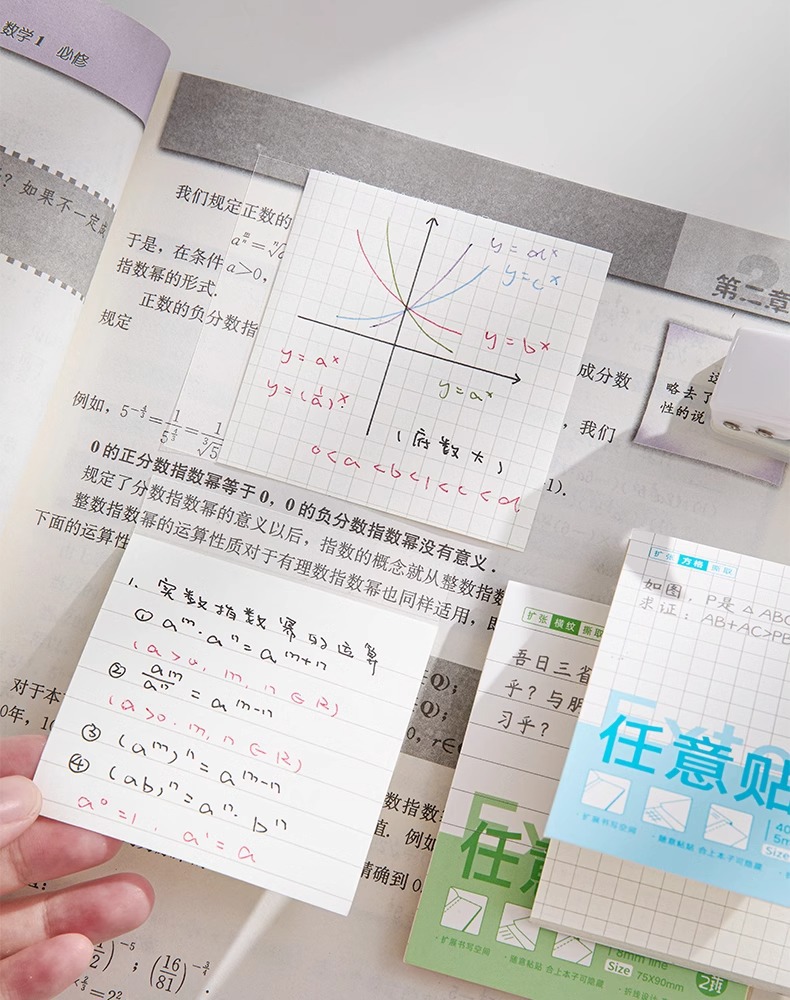 数学1 必修
? 如果不一定
我们规定正数的
于是，在条件 a>0，
指数幂的形式.
正数的负分数指
规定
成分数
，我们
1).
例如，
0的正分数指数幂等于0，0的负分数指数幂没有意义.
规定了分数指数幂的意义以后，指数的概念就从整数指数
整数指数幂的运算性质对于有理数指数幂也同样适用，即
下面的运算性
y=dˣ
y=cˣ
y=bˣ
y=aˣ
y=aˣ
y=(1/a)ˣ
(底数大)
0<a<b<1<c<d
第二章
略去了
性的说
1. 实数指数幂的运算
① aᵐ·aⁿ=aᵐ⁺ⁿ
(a>0, m, n∈R)
② aᵐ/aⁿ=aᵐ⁻ⁿ
(a>0. m, n∈R)
③ (aᵐ)ⁿ=aᵐ⁻ⁿ
④ (ab)ⁿ=aⁿ·bⁿ
a⁰=1, a¹=a
Q);
Q);
对于本
0年，
数指数
值. 例如
精确到 0
(1/2)⁻⁵; (16/81)^(-3/4).
=2²
扩张 横纹 撕取
吾日三省
乎？与朋
习乎？
任意
·扩展书写空间 ·随意粘贴 合上本子可隐藏
8mm line
Size 75X90mm
扩张 方格 撕取
如图，P是△ABC
求证：AB+AC>PB
任意贴
·扩展书写空间 ·随意粘贴 合上本子可隐藏
Size